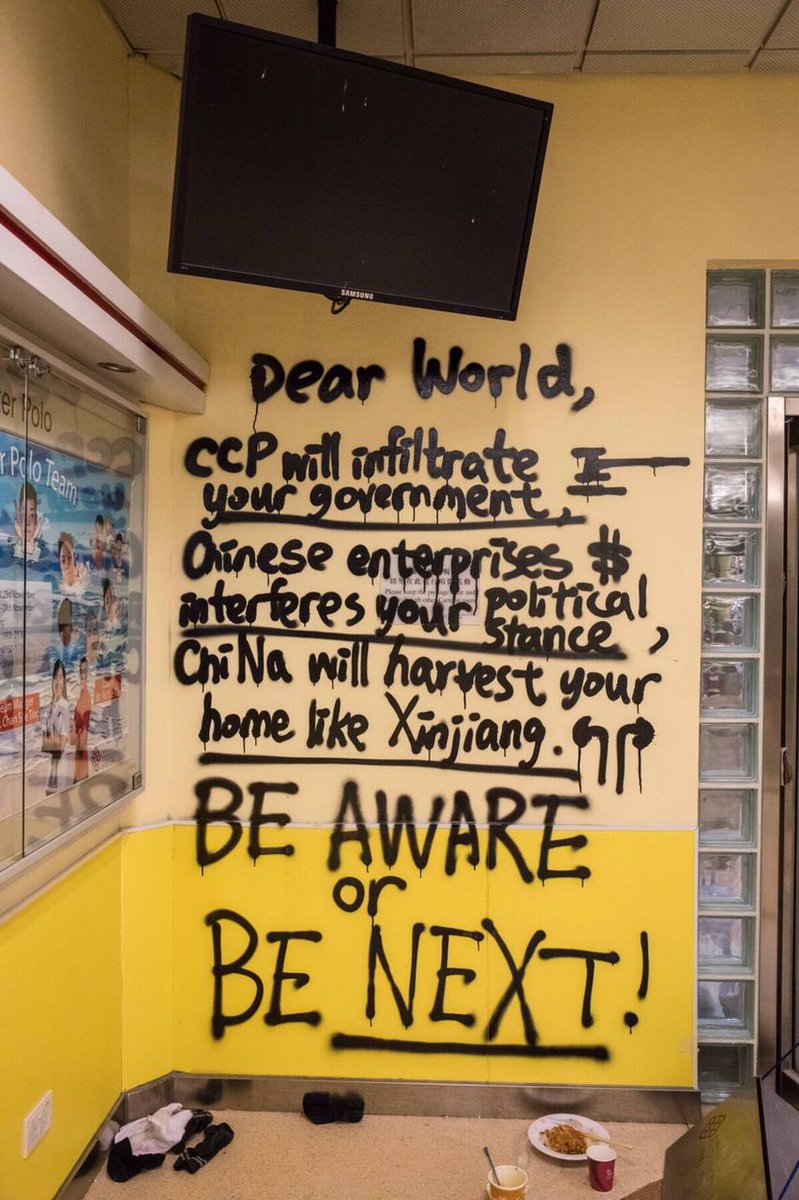 SAMSUNG
Dear World,
CCP will infiltrate
your government,
Chinese enterprises $
interferes your political
stance,
ChiNa will harvest your
home like Xinjiang.
BE AWARE
or
BE NEXT!
Polo
Polo Team
23rd November